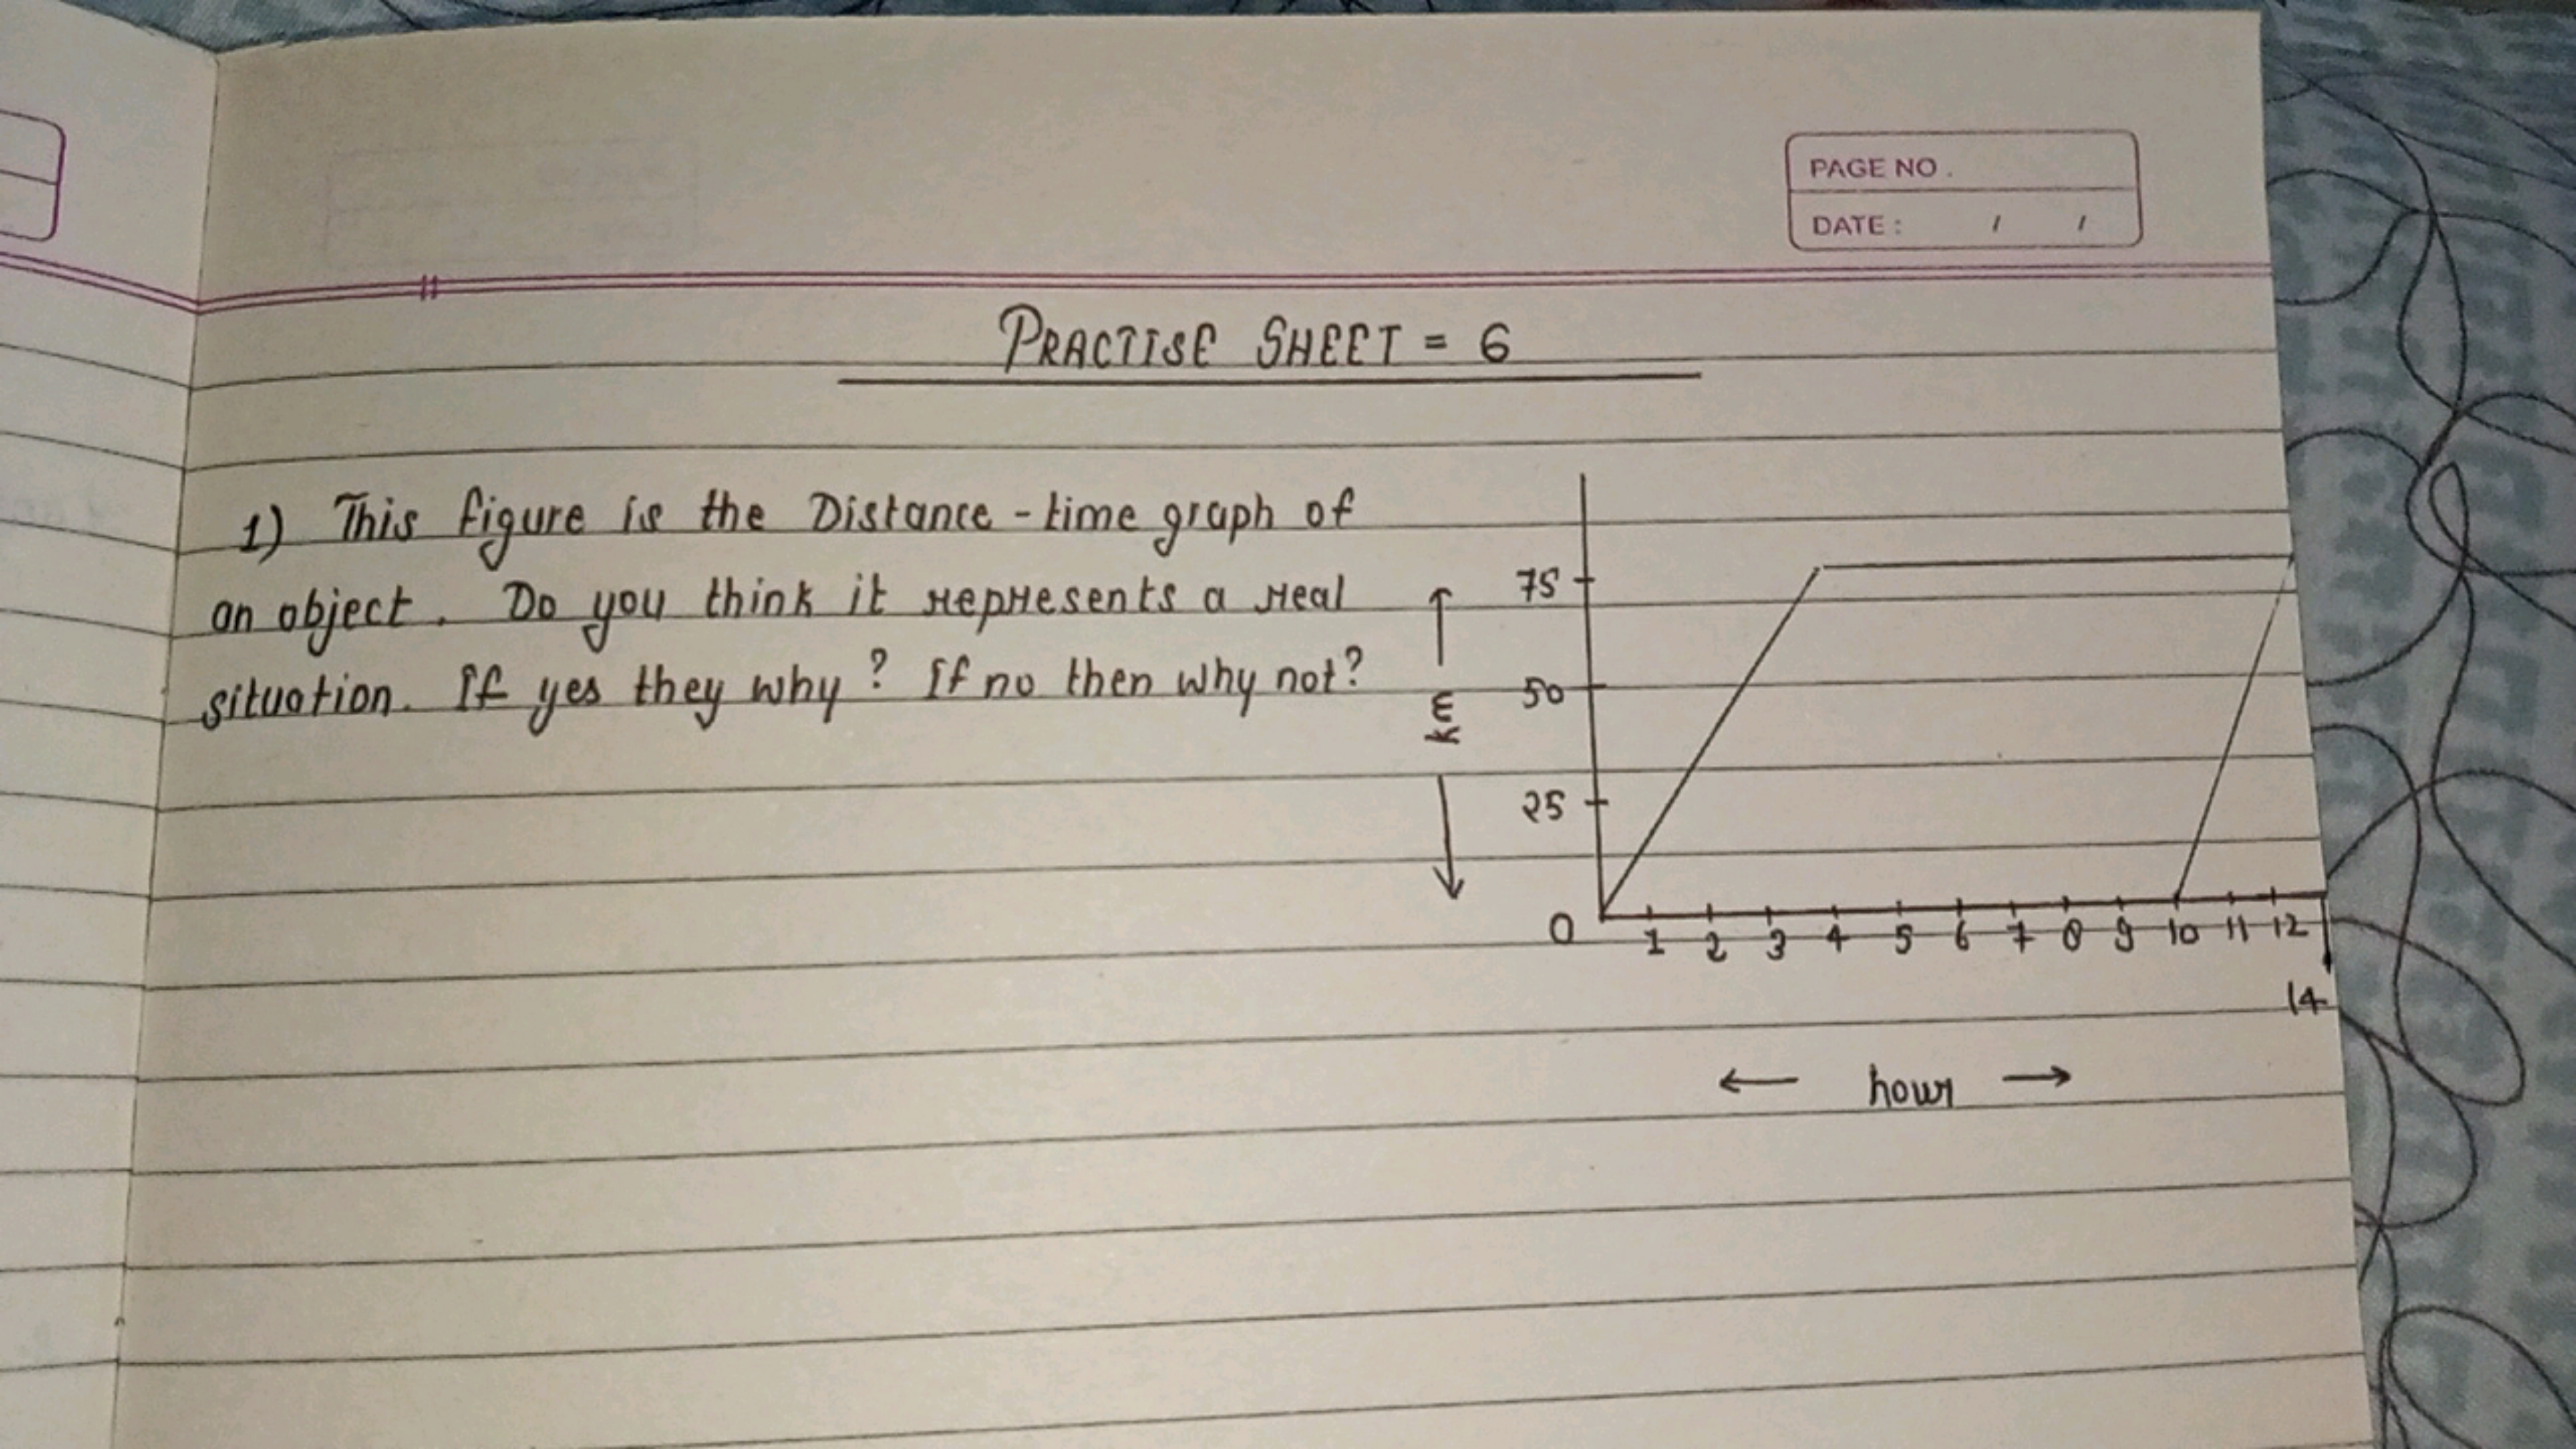 PAGE NO.
DATE : / /
PRACTISE SHEET = 6
1) This figure is the Distance - time graph of
an object. Do you think it represents a real
situation. If yes they why? If no then why not?
75
50
25
0
km
1 2 3 4 5 6 7 8 9 10 11 12
14
hour